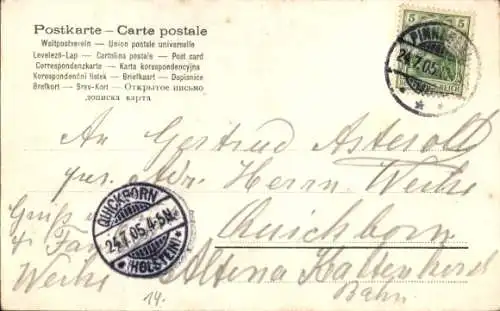 Postkarte - Carte postale
Weltpostverein — Union postale universelle
Levelező-Lap — Cartolina postale — Post card
Correspondenzkarte — Karta korespondencyjna
Korespondenční lístek — Briefkaart — Dopisnice
Brefkort — Brev-Kort — Открытое письмо
дописна карта
5 5
24.7.05
An Gertrud
Adr. Herrn
QUICKBORN
24.7.05.4-5N.
(HOLSTEIN)
Gruß
Quickborn
Altona Kaltenkirch
Bahn
14.